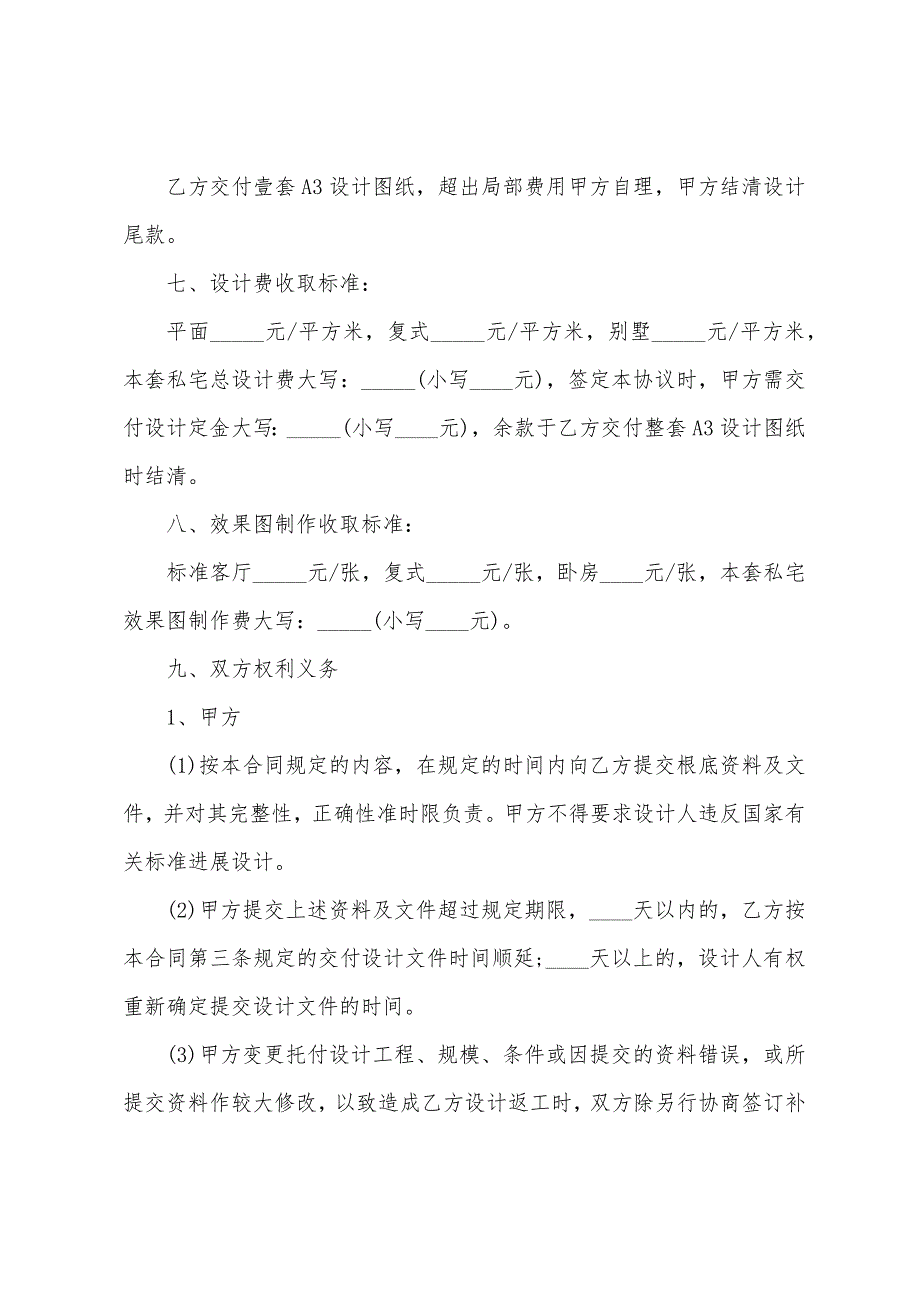 乙方交付壹套 A3 设计图纸，超出局部费用甲方自理，甲方结清设计
尾款。
七、设计费收取标准：
平面_____元/平方米，复式_____元/平方米，别墅_____元/平方米，
本套私宅总设计费大写：_____(小写____元)，签定本协议时，甲方需交
付设计定金大写：_____(小写____元)，余款于乙方交付整套 A3 设计图纸
时结清。
八、效果图制作收取标准：
标准客厅_____元/张，复式_____元/张，卧房____元/张，本套私宅
效果图制作费大写：_____(小写____元)。
九、双方权利义务
1、甲方
(1)按本合同规定的内容，在规定的时间内向乙方提交根底资料及文
件，并对其完整性，正确性准时限负责。甲方不得要求设计人违反国家有
关标准进展设计。
(2)甲方提交上述资料及文件超过规定期限，____天以内的，乙方按
本合同第三条规定的交付设计文件时间顺延;____天以上的，设计人有权
重新确定提交设计文件的时间。
(3)甲方变更托付设计工程、规模、条件或因提交的资料错误，或所
提交资料作较大修改，以致造成乙方设计返工时，双方除另行协商签订补